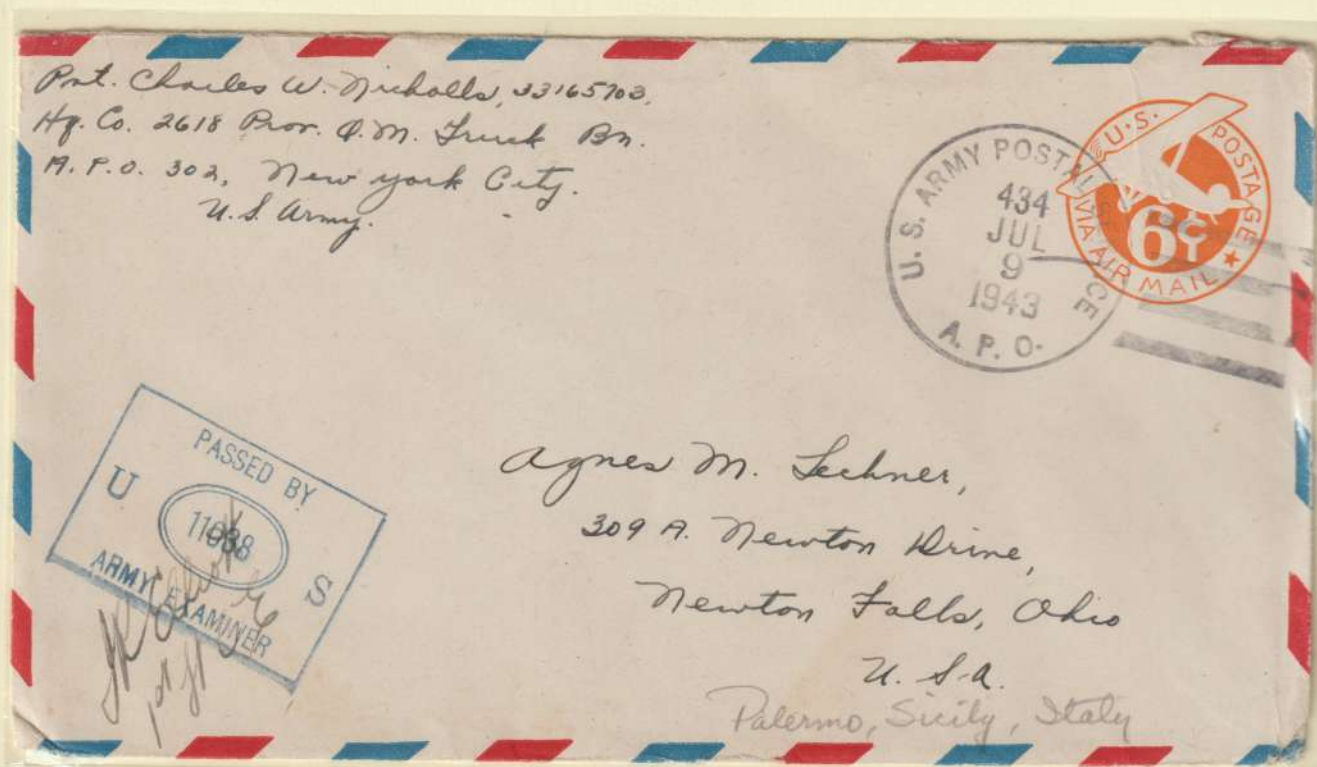 Pvt. Charles W. Nicholls, 33165703,
Hq. Co. 2618 Prov. Q.M. Truck Bn.
A.P.O. 302, New York City.
U.S. Army.
U.S. ARMY POSTAL
434
JUL
9
1943
A.P.O.
U.S. POSTAGE
6¢
VIA AIR MAIL
PASSED BY
U S
ARMY EXAMINER
Agnes M. Lechner,
309 A. Newton Drive,
Newton Falls, Ohio
U.S.A.
Palermo, Sicily, Italy
1st Lt